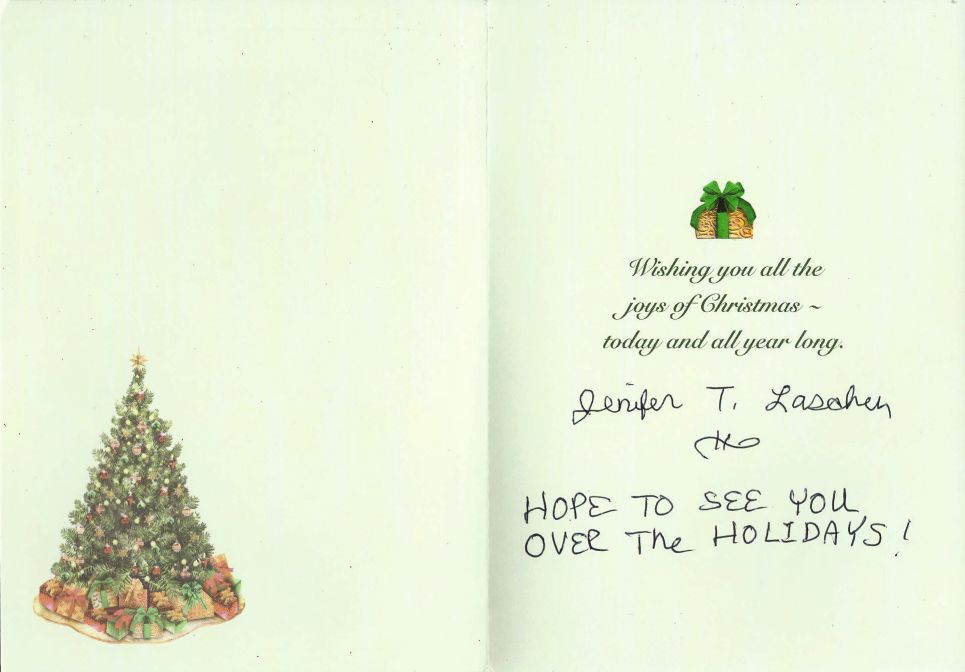 Wishing you all the
joys of Christmas ~
today and all year long.
Jenifer T.
HOPE TO SEE YOU
OVER The HOLIDAYS!